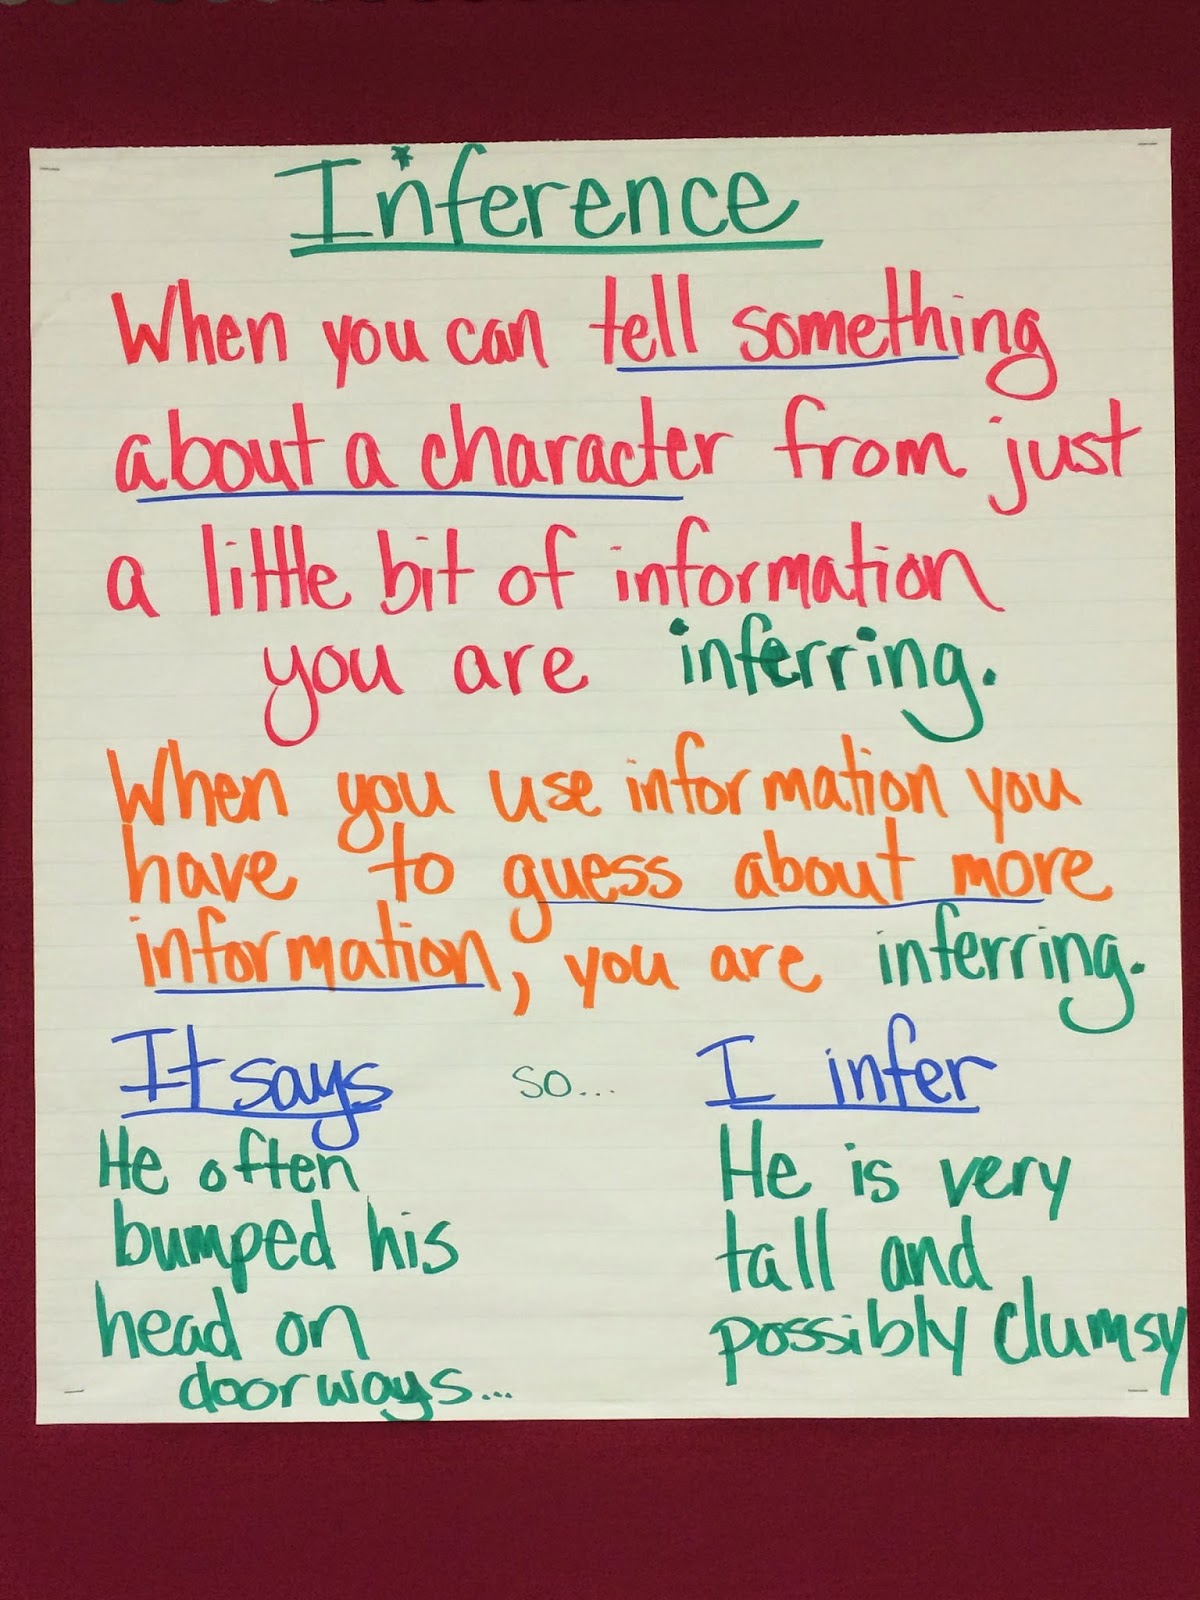 Inference
When you can tell something
about a character from just
a little bit of information
you are inferring.
When you use information you
have to guess about more
information, you are inferring.
It says so... I infer
He often
bumped his
head on
doorways...
He is very
tall and
possibly clumsy